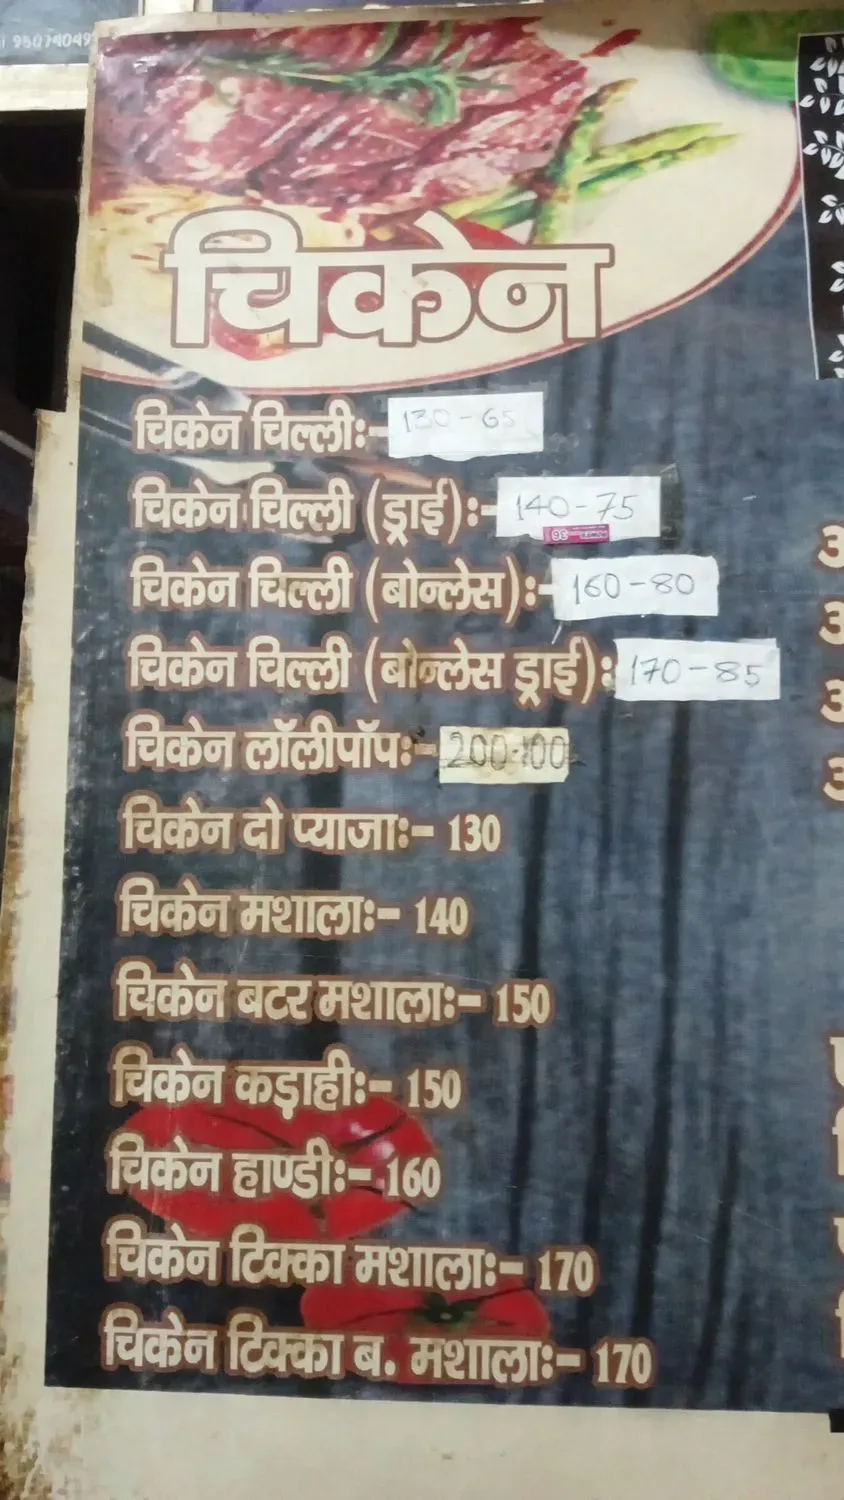 चिकेन
चिकेन चिल्ली:- 130-65
चिकेन चिल्ली (ड्राई):- 140-75
चिकेन चिल्ली (बोन्लेस):- 160-80
चिकेन चिल्ली (बोन्लेस ड्राई): 170-85
चिकेन लॉलीपॉप:- 200-100
चिकेन दो प्याजा:- 130
चिकेन मशाला:- 140
चिकेन बटर मशाला:- 150
चिकेन कड़ाही:- 150
चिकेन हाण्डी:- 160
चिकेन टिक्का मशाला:- 170
चिकेन टिक्का ब. मशाला:- 170